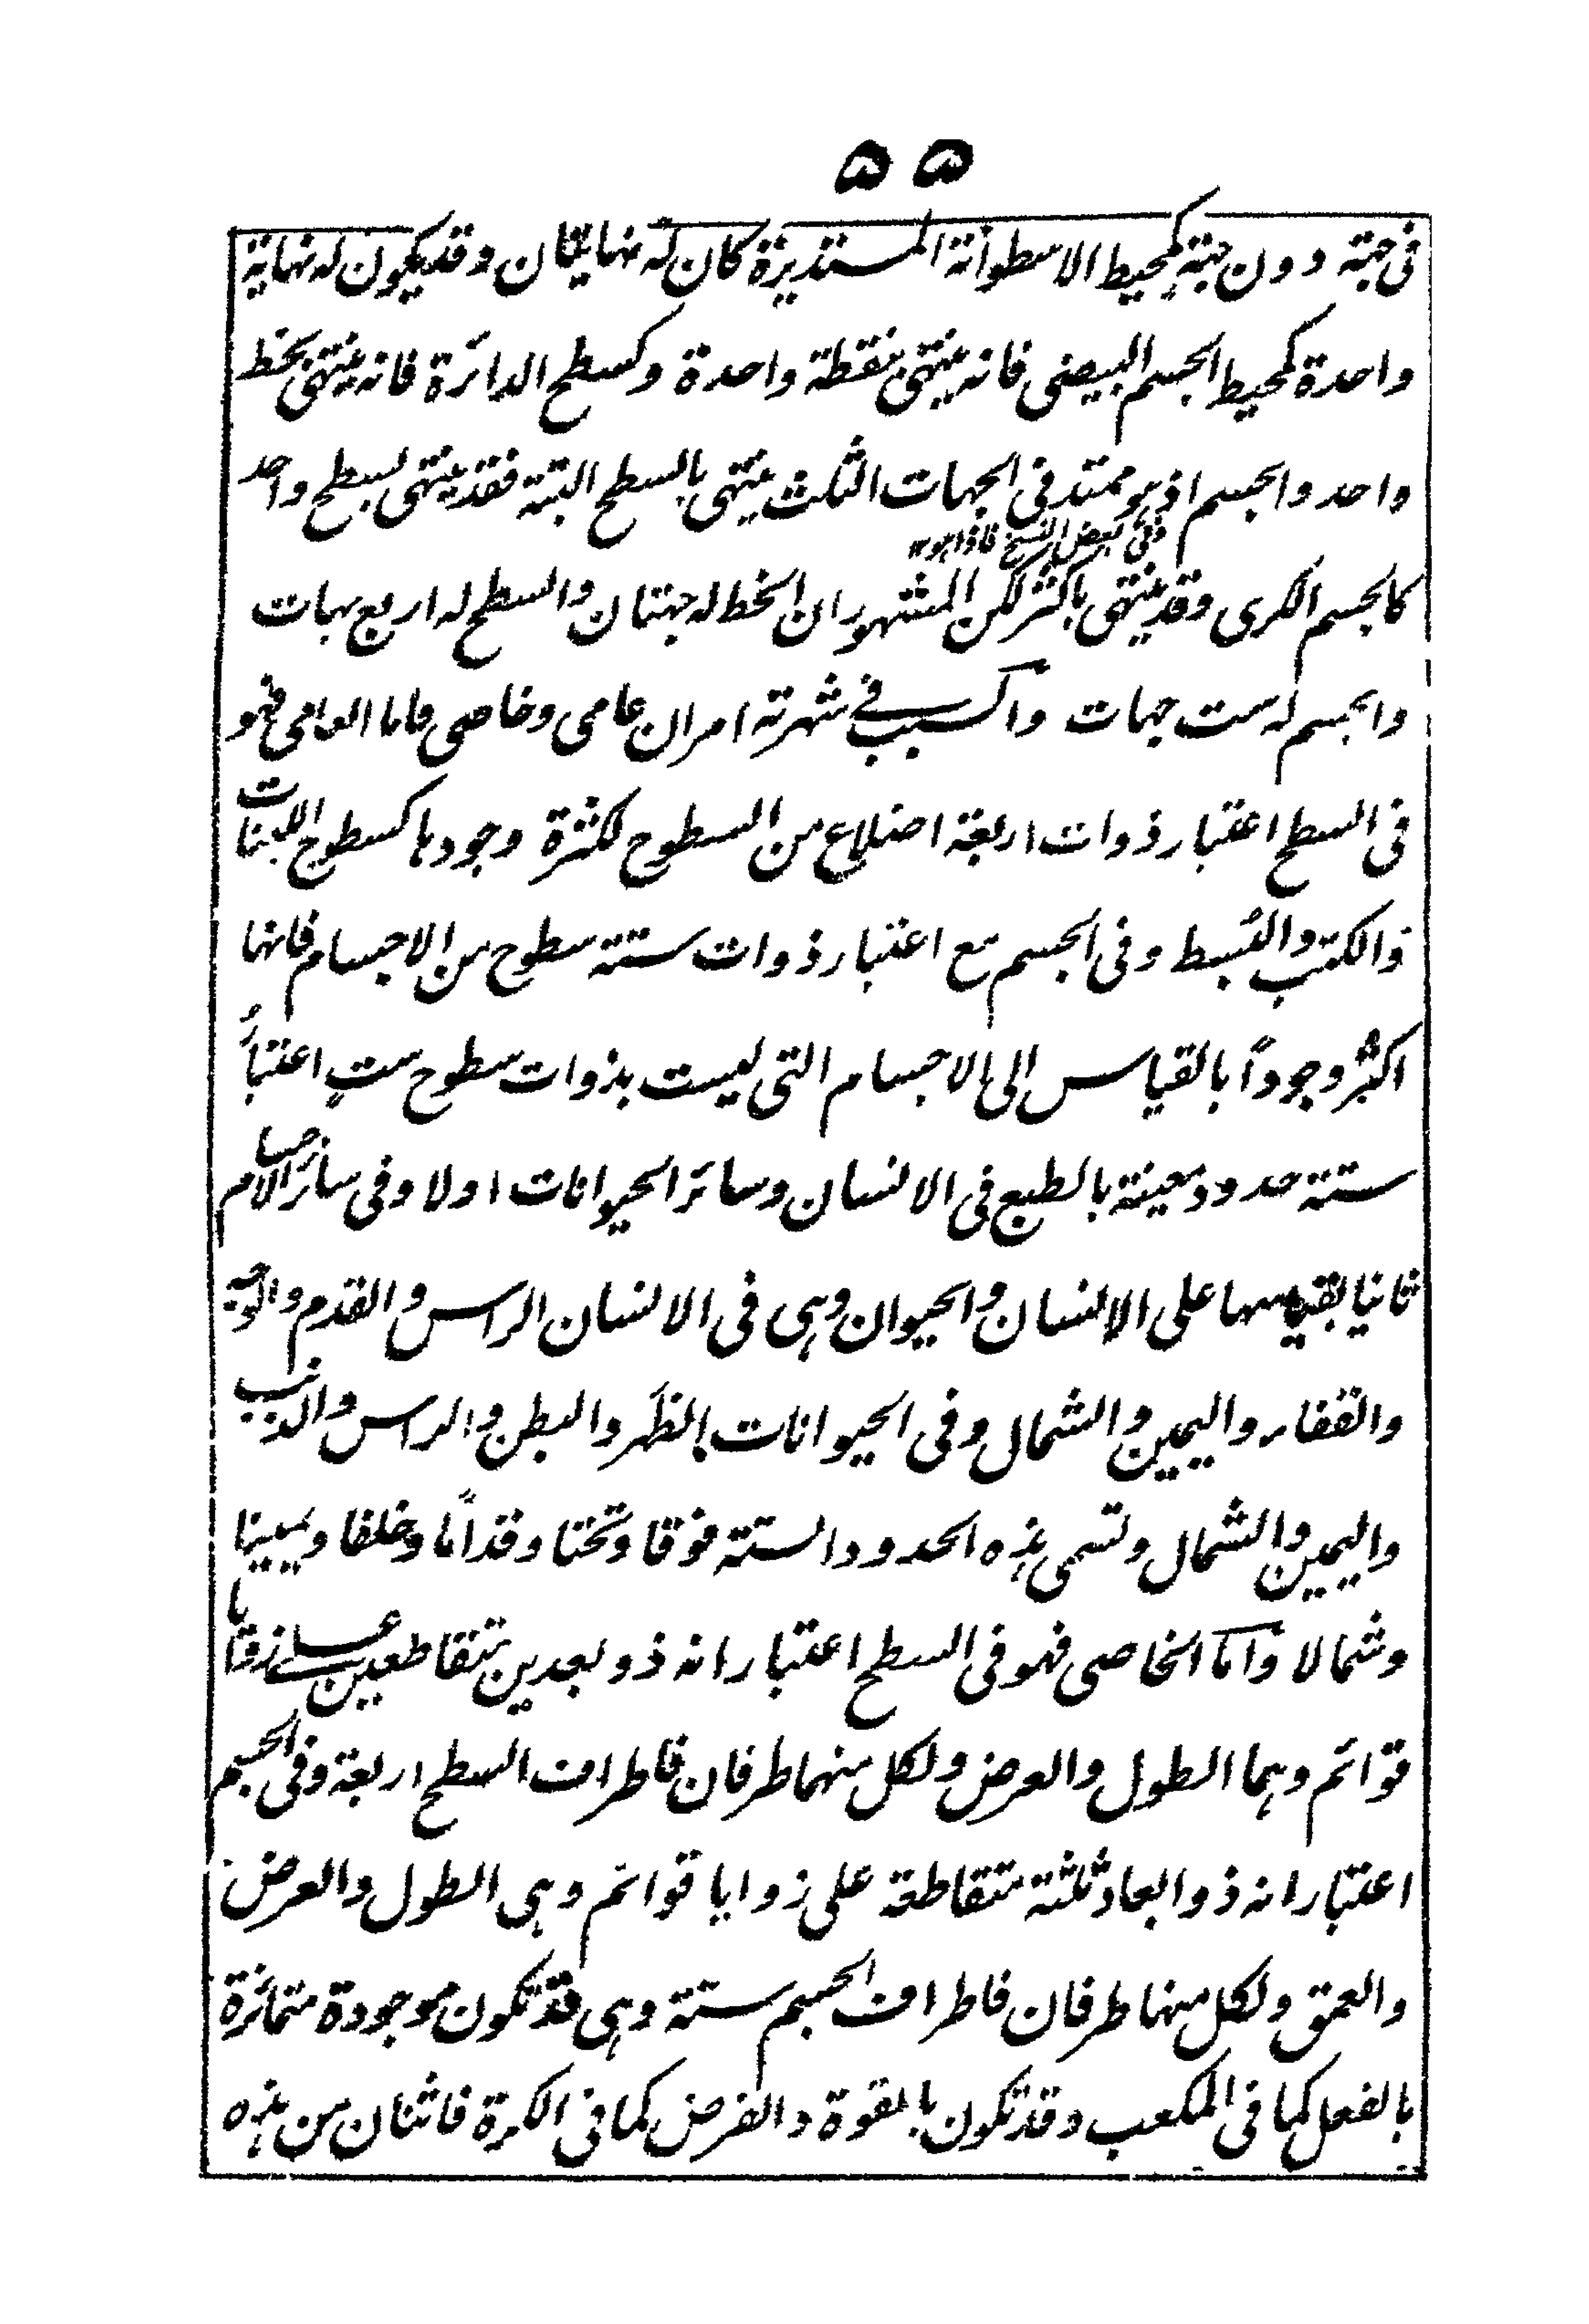 ۵۵
فی جهة دون جهة كمحیط الاسطوانة المستدیرة كان له نهایتان وقد یكون له نهایة
واحدة كمحیط الجسم البیضی فانه ینتهی بنقطة واحدة وكسطح الدائرة فانه ینتهی بخط
واحد والجسم اذ هو ممتد فی الجهات الثلث ینتهی بالسطح البتة فقد ینتهی بسطح واحد
وفی بعض النسخ فاذا هو ۱۲
كالجسم الكری وقد ینتهی باكثر لكن المشهور ان الخط له جهتان والسطح له اربع جهات
والجسم له ست جهات والسبب فی شهرته امران عامی وخاصی فاما العامی فهو
فی السطح اعتبار ذوات اربعة اضلاع من السطوح لكثرة وجودها كسطوح اللبنات
والكتب والبسط وفی الجسم مع اعتبار ذوات ستة سطوح من الاجسام فانها
اكثر وجوداً بالقیاس الی الاجسام التی لیست بذوات سطوح ستٍ اعتبارُ
ستة حدود معینة بالطبع فی الانسان وسائر الحیوانات اولا وفی سائر الاجسام
ثانیا بقیاسها علی الانسان والحیوان وهی فی الانسان الراس والقدم والوجه
والقفار والیمین والشمال وفی الحیوانات الظهر والبطن والراس والذنب
والیمین والشمال وتسمی هذه الحدود الستة فوقا وتحتا وقداًما وخلفا ویمینا
وشمالا واما الخاصی فهو فی السطح اعتبار انه ذو بعدین متقاطعین علی زوایا
قوائم وهما الطول والعرض ولكل منهما طرفان فاطراف السطح اربعة وفی الجسم
اعتبار انه ذو ابعاد ثلثة متقاطعة علی زوایا قوائم وهی الطول والعرض
والعمق ولكل منها طرفان فاطراف الجسم ستة وهی قد تكون موجودة متمائزة
بالفعل كما فی المكعب وقد تكون بالقوة والفرض كما فی الكرة فاثنان من هذه